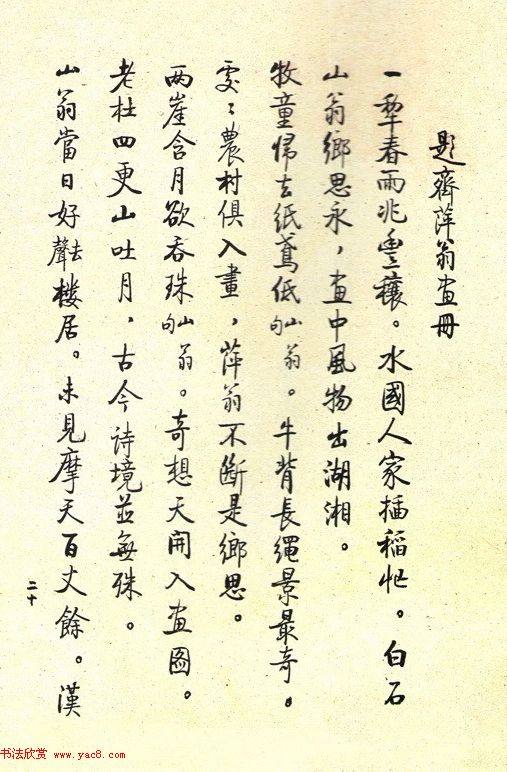 題齊萍翁畫冊
一犂春雨兆豐穰。水國人家插稻忙。白石
山翁鄉思永，畫中風物出湖湘。
牧童歸去紙鳶低山翁句。牛背長繩景最奇。
處〻農村俱入畫，萍翁不斷是鄉思。
两崖含月欲吞珠山翁句。奇想天開入畫圖。
老杜四更山吐月，古今诗境並無殊。
山翁當日好去聲樓居。未見摩天百丈餘。漢
二十
书法欣赏 www.yac8.com